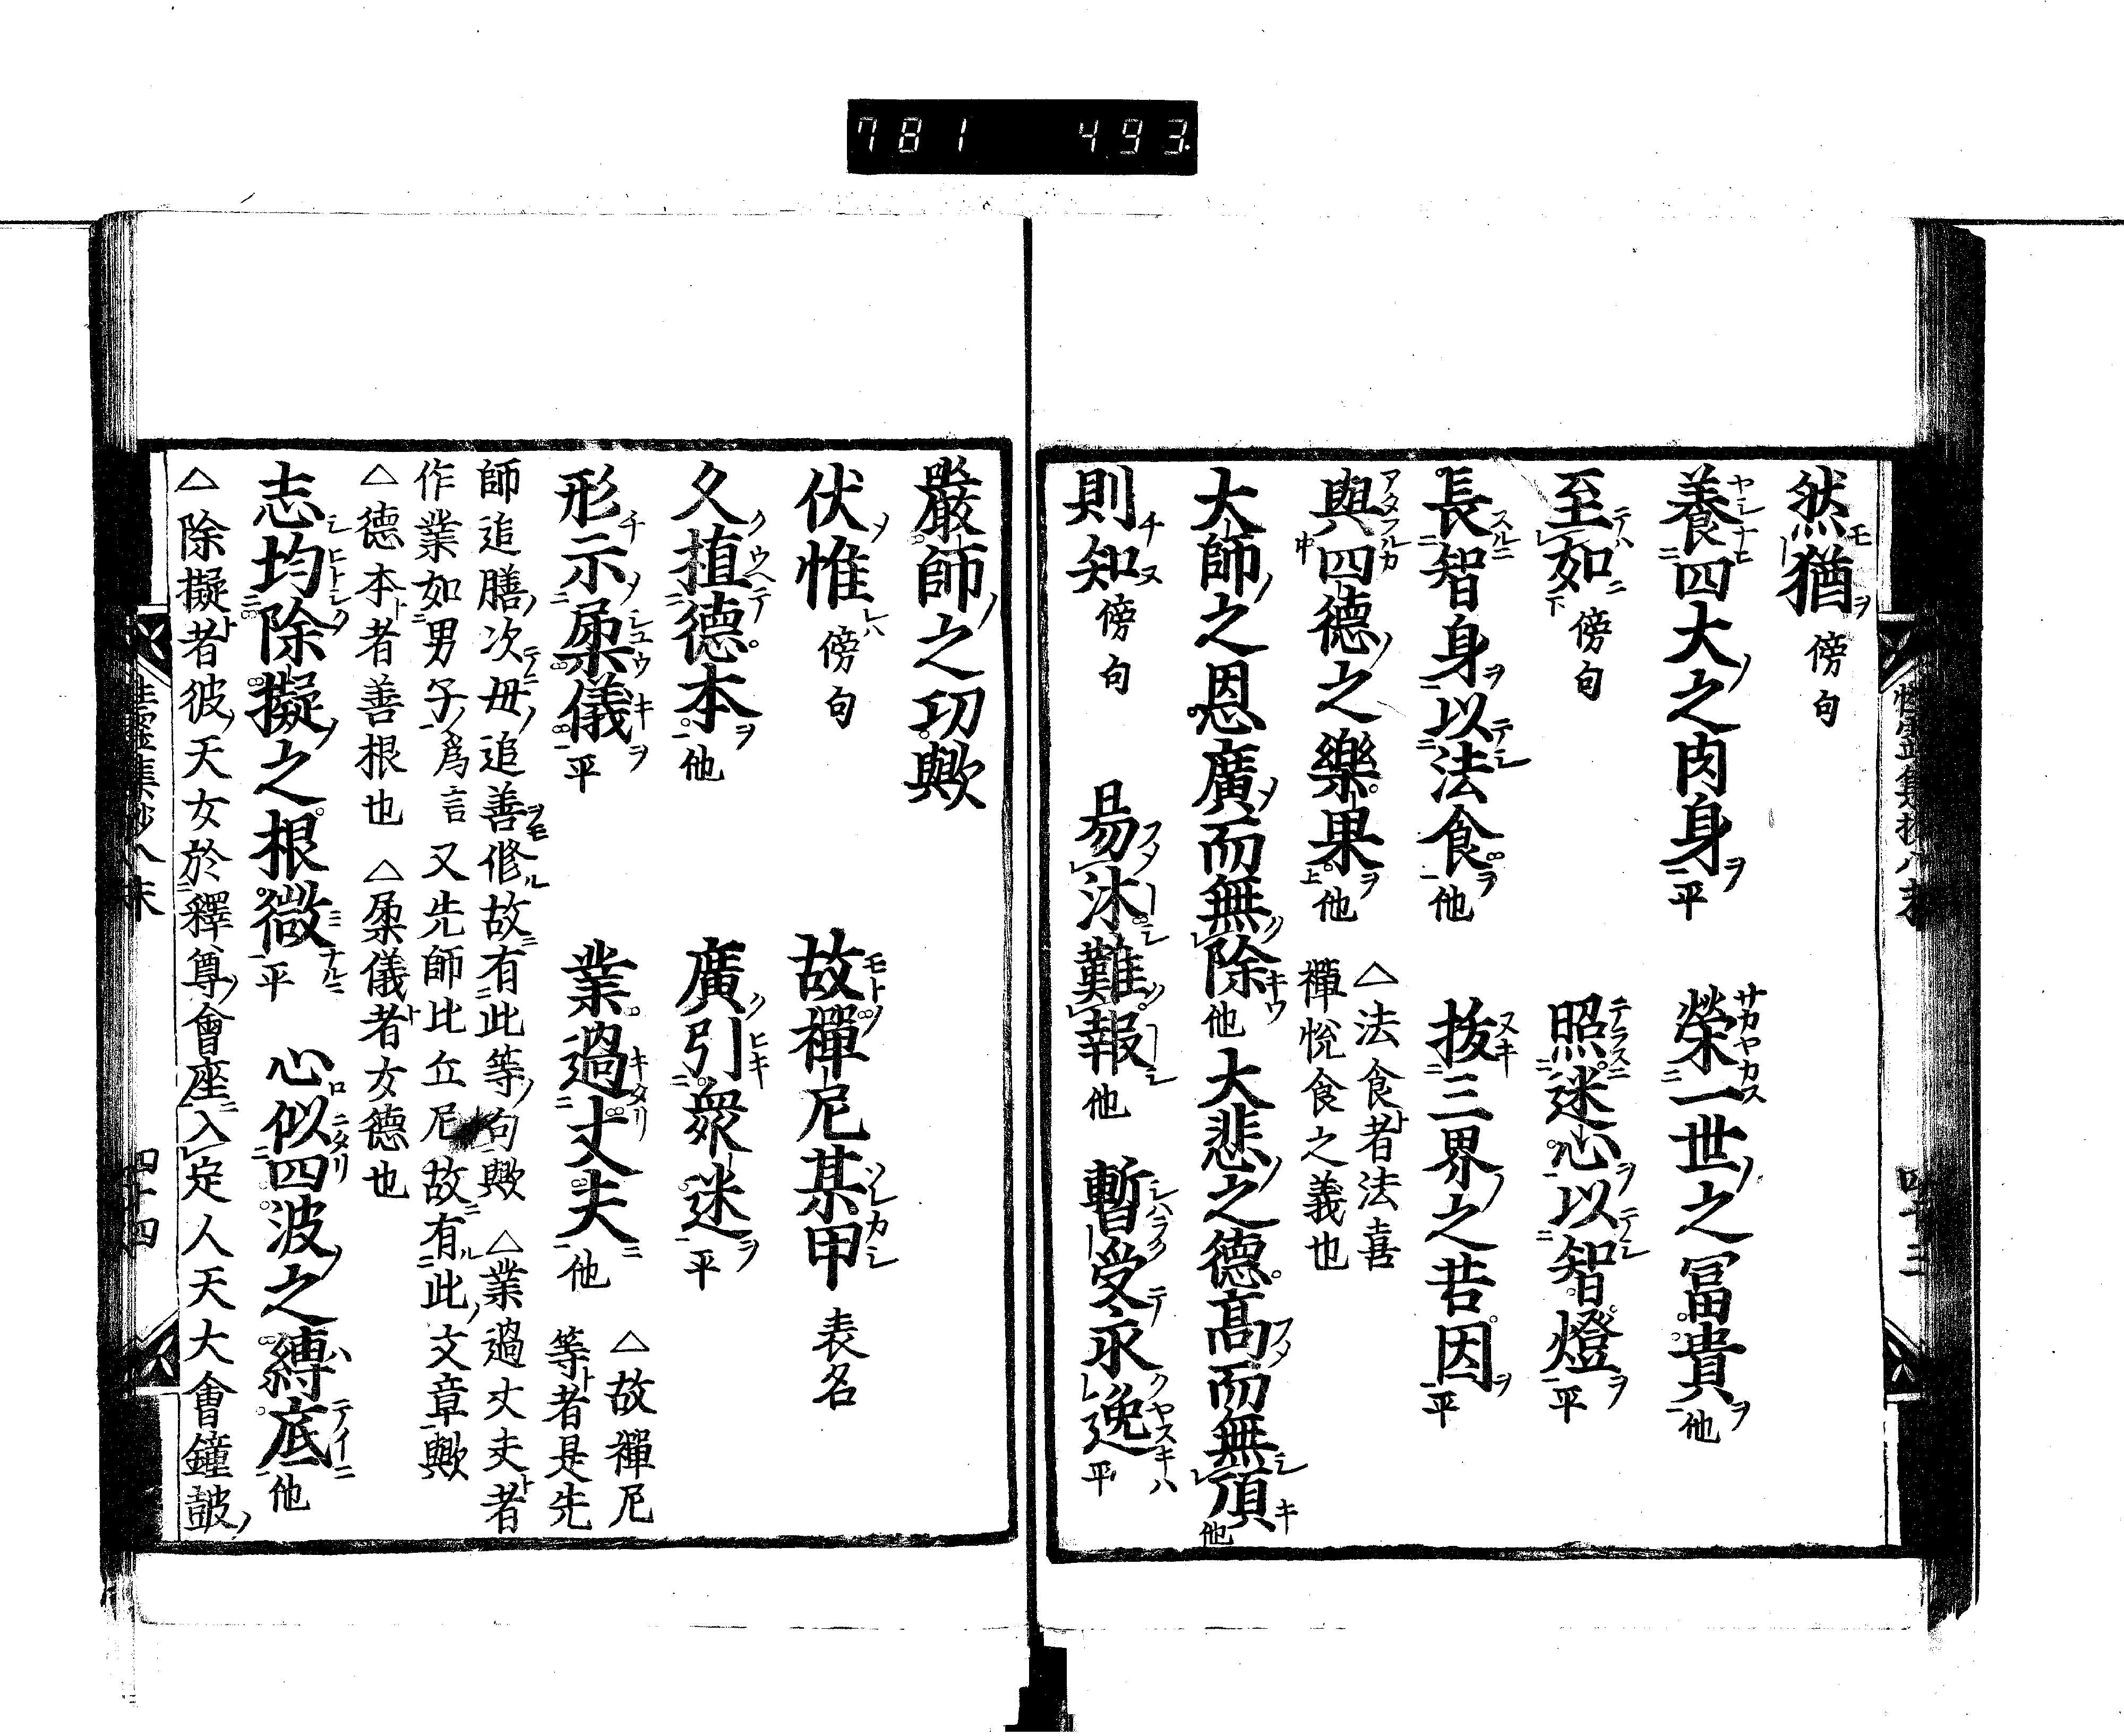 781 493
然猶 傍句
養四大之肉身平 榮一世之冨貴他
至如 傍句 照迷心以智燈平
長智身以法食他 拔三界之苦因平
與四德之樂果他 △法食者法喜
禪悅食之義也
大師之恩廣而無除他大悲之德高而無頂他
則知 傍句 昜沐難報他 暫受永逸平
嚴師之功歟
伏惟 傍句 故禪尼某甲 表名
久植德本他 廣引衆迷平
形示柔儀平 業過丈夫他 △故禪尼
等者是先
師追膳次母追善修故有此等句歟 △業過丈夫者
作業如男子爲言 又先師比丘尼故有此文章歟
△德本者善根也 △柔儀者女德也
志均除擬之根微平 心似四波之縛底他
△除擬者彼天女於釋尊會座入定人天大會鐘皷
性靈集抄八末
四十四